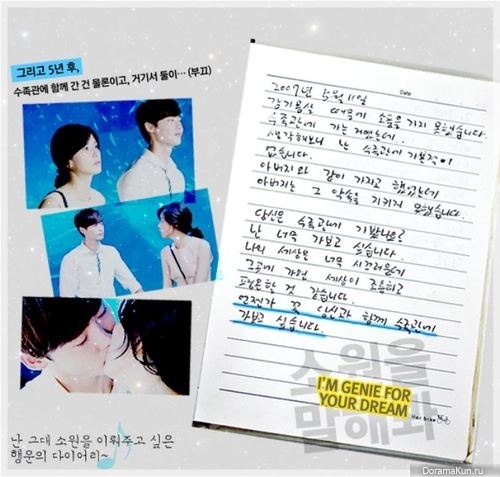 그리고 5년 후,
수족관에 함께 간 건 물론이고, 거기서 둘이… (부끄)
Date
2007년 5월 11일
감기몸살 때문에 소풍을 가지 못했습니다.
수족관에 가는 거였는데.
생각해보니 난 수족관에 가본적이
없습니다.
아버지와 같이 가기로 했었는데
아버지는 그 약속을 지키지 못했습니다.
당신은 수족관에 가봤나요?
난 너무 가보고 싶습니다
나의 세상은 너무 시끄러운데
그곳에 가면 세상이 조용하고
평온할 것 같습니다.
언젠가 꼭 당신과 함께 수족관에
가보고 싶습니다.
소원을
말해봐
I'M GENIE FOR
YOUR DREAM
난 그대 소원을 이뤄주고 싶은
행운의 다이어리~
DoramaKun.ru